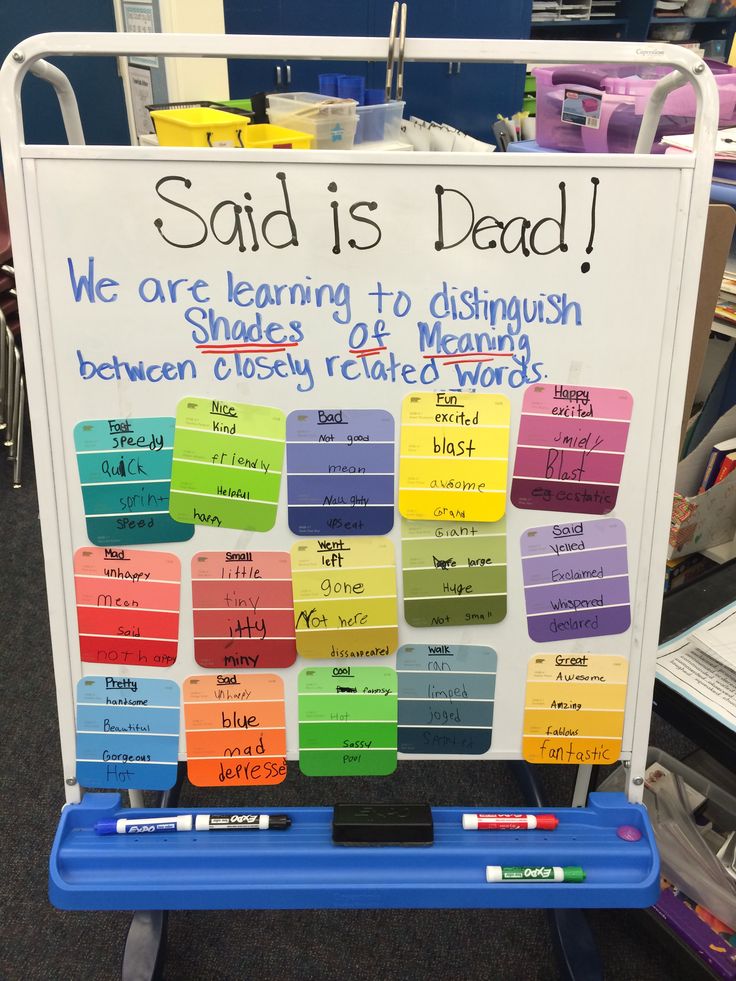 Said is Dead!
We are learning to distinguish
Shades of Meaning
between closely related words.
Fast
speedy
Quick
sprint
speed
Nice
Kind
friendly
Helpful
happy
Bad
Not good
mean
Naughty
upseat
Fun
excited
blast
awsome
Grand
Happy
excited
smiely
Blast
egecstatic
Mad
unhappy
mean
Said
not happy
Small
little
tiny
itty
miny
Went
left
gone
Not here
dissapeared
Giant
large
Huge
Not small
Said
Yelled
Exclaimed
whispered
declared
Pretty
handsome
Beautiful
Gorgeous
Hot
Sad
unhappy
blue
mad
depresse
Cool
Hot
Sassy
pool
Walk
ran
limped
joged
Great
Awesome
Amzing
Fablous
fantastic
EXPO
EXPO
EXPO
EXPO
EXPO